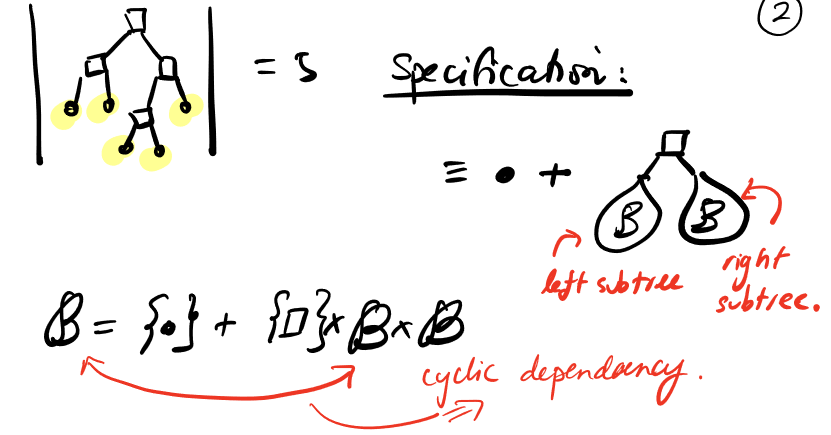 ②
= 5 Specification:
≡ • + □
B B
left subtree
right
subtree.
B = {•} + {□} × B × B
cyclic dependancy.